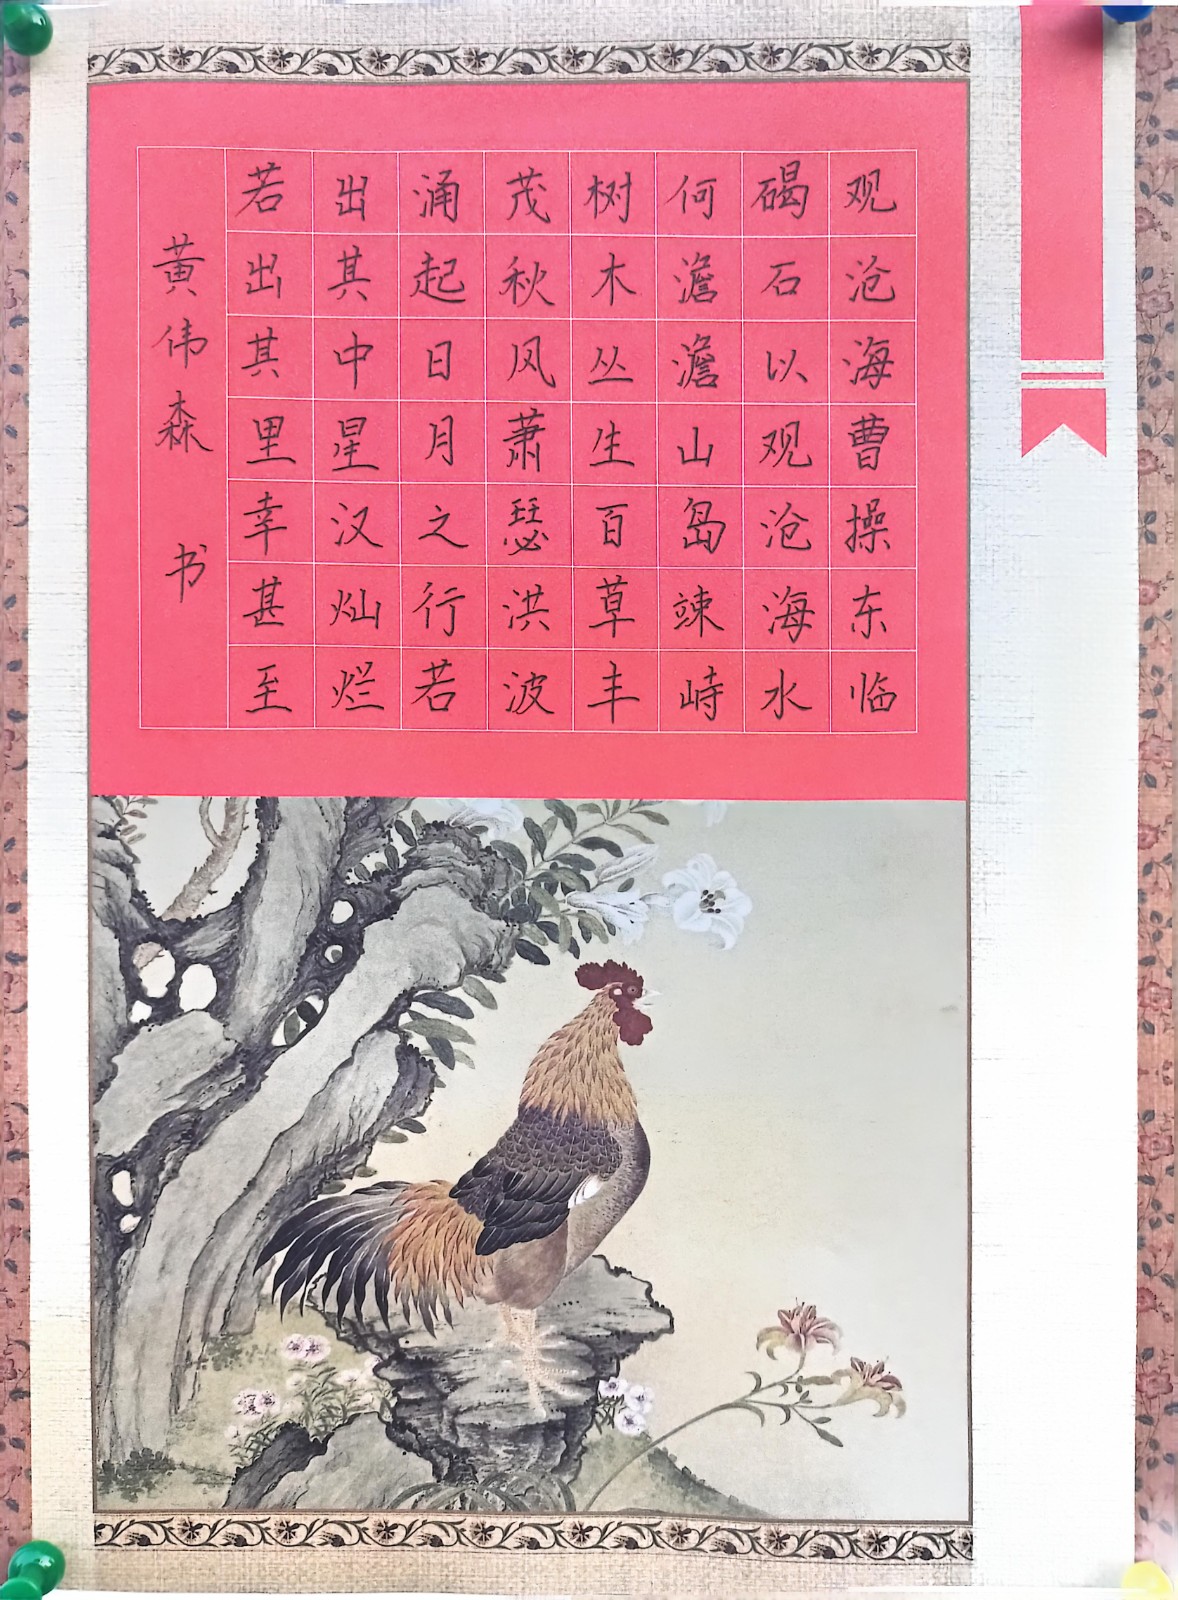 观沧海曹操东临
碣石以观沧海水
何澹澹山岛竦峙
树木丛生百草丰
茂秋风萧瑟洪波
涌起日月之行若
出其中星汉灿烂
若出其里幸甚至
黄伟森 书